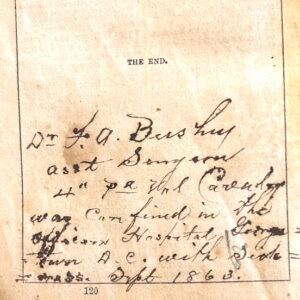 THE END.
Dr F. A. Bushey
asst Surgeon
4" pa Vol Cavalry
was confined in the
officers Hospital George
town D.C. with Sick
ness. Sept 1863.
120